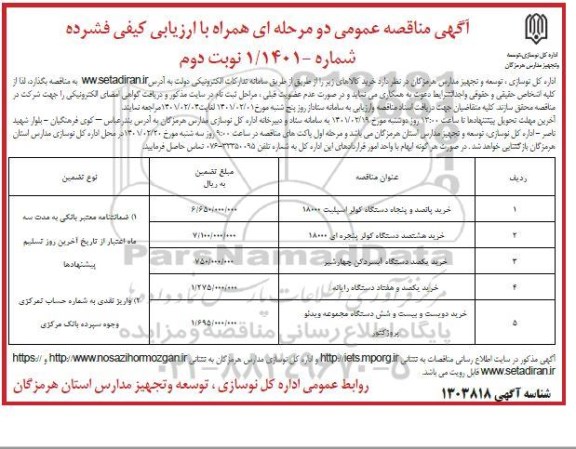 آگهی مناقصه عمومی دو مرحله ای همراه با ارزیابی کیفی فشرده
شماره -۱/۱۴۰۱ نوبت دوم
اداره کل نوسازی،توسعه
وتجهیز مدارس هرمزگان
اداره کل نوسازی ، توسعه و تجهیز مدارس هرمزگان در نظر دارد خرید کالاهای زیر را از طریق از طریق سامانه تدارکات الکترونیکی دولت به آدرس www.setadiran.ir به مناقصه بگذارد، لذا از
کلیه اشخاص حقیقی و حقوقی واجدالشرایط دعوت به همکاری می نماید و در صورت عدم عضویت قبلی ، مراحل ثبت نام در سایت مذکور و دریافت گواهی امضای الکترونیکی را جهت شرکت در
مناقصه محقق سازند. کلیه متقاضیان جهت دریافت اسناد مناقصه وارزیابی به سامانه ستاداز روز پنج شنبه مورخ ۱۴۰۱/۰۲/۰۱ لغایت ۱۴۰۱/۰۲/۰۳ مراجعه نمایند.
آخرین مهلت تحویل پیشنهادها تا ساعت ۱۳:۰۰ روز دوشنبه مورخ ۱۴۰۱/۰۲/۱۹ به سامانه ستاد و دبیرخانه اداره کل نوسازی مدارس هرمزگان به آدرس بندرعباس – کوی فرهنگیان - بلوار شهید
ناصر - اداره کل نوسازی، توسعه و تجهیز مدارس استان هرمزگان می باشد و مرحله اول پاکت های مناقصه در ساعت ۹:۰۰ روز سه شنبه مورخ ۱۴۰۱/۰۲/۲۰ در محل اداره کل نوسازی مدارس استان
هرمزگان بازگشایی خواهد شد . در صورت هر گونه ابهام با واحد امور قراردادهای این اداره کل به شماره تلفن ۰۷۶-۳۳۳۵۰۰۹۵ تماس حاصل فرمایید.
ردیف عنوان مناقصه مبلغ تضمین به ریال نوع تضمین
۱ خرید پانصد و پنجاه دستگاه کولر اسپلیت ۱۸۰۰۰ ۶/۶۵۰/۰۰۰/۰۰۰
۲ خرید هشتصد دستگاه کولر پنجره ای ۱۸۰۰۰ ۷/۱۰۰/۰۰۰/۰۰۰
۳ خرید یکصد دستگاه آبسردکن چهارشیر ۷۵۰/۰۰۰/۰۰۰
۴ خرید یکصد و هفتاد دستگاه رایانه ۱/۲۷۵/۰۰۰/۰۰۰
۵ خرید دویست و بیست و شش دستگاه مجموعه ویدئو پروژکتور ۱/۶۹۵/۰۰۰/۰۰۰
۱) ضمانتنامه معتبر بانکی به مدت سه
ماه اعتبار از تاریخ آخرین روز تسلیم
پیشنهادها
۲) واریز نقدی به شماره حساب تمرکزی
وجوه سپرده بانک مرکزی
آگهی مذکور در سایت اطلاع رسانی مناقصات به نشانی http://iets.mporg.ir و اداره کل نوسازی مدارس هرمزگان به نشانی http://www.nosazihormozgan.ir و https://
www.setadiran.ir قابل رویت می باشد.
روابط عمومی اداره کل نوسازی ، توسعه وتجهیز مدارس استان هرمزگان
شناسه آگهی ۱۳۰۳۸۱۸
ParsNamadData
پایگاه اطلاع رسانی مناقصه و مزایده
۰۲۱-۸۸۳۴۹۶۷۰-۵